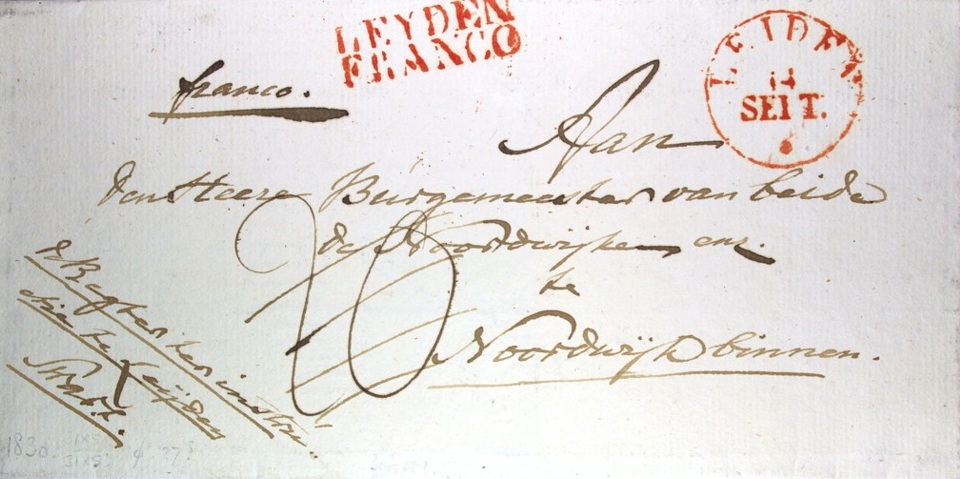 LEYDEN
FRANCO
LEIDEN
14
SEPT.
franco.
Aan
den Heere Burgemeester van beide
de Noordwijken enz.
te
Noordwijk binnen.
de Regter ter instru
ctie te Leijden
1830